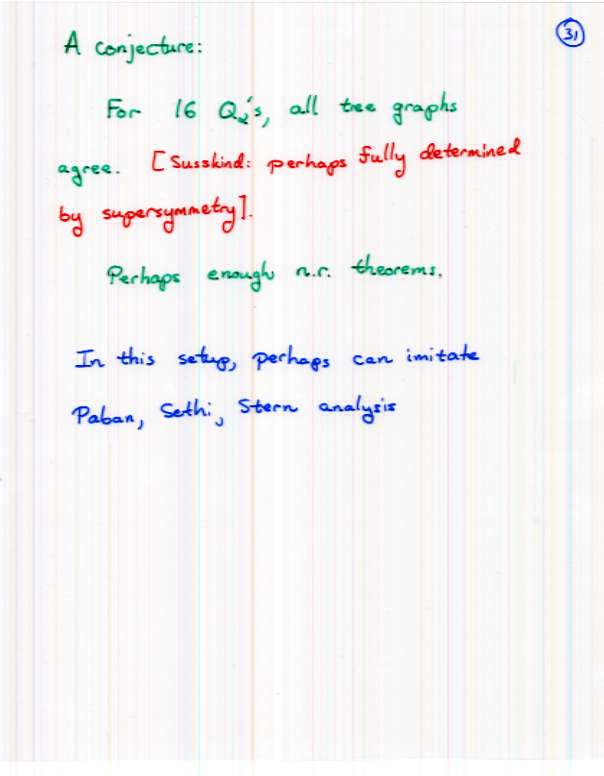 31
A conjecture:
For 16 Q₂'s, all tree graphs
agree. [Susskind: perhaps fully determined
by supersymmetry].
Perhaps enough n.r. theorems.
In this setup, perhaps can imitate
Paban, Sethi, Stern analysis